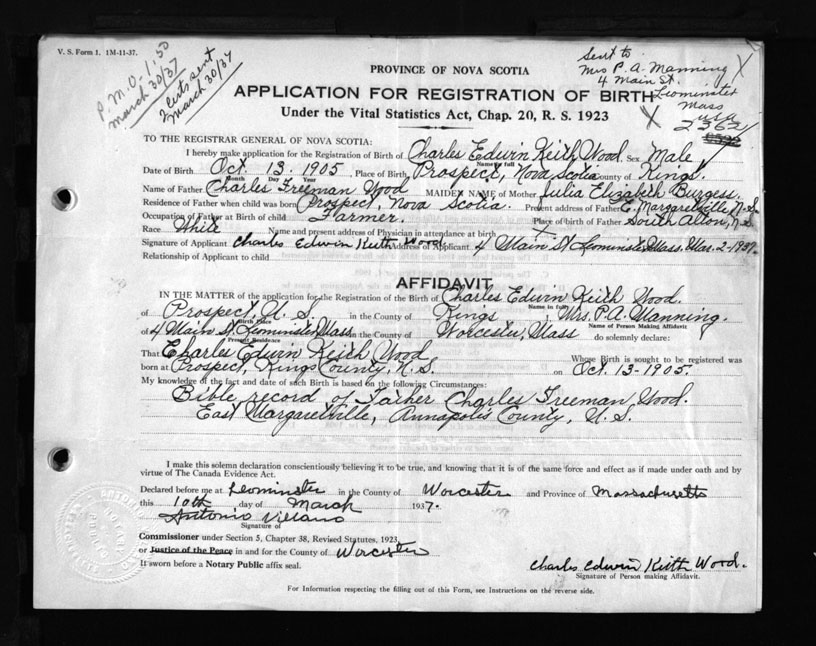 V. S. Form 1. 1M-11-37.
P.M.O. 1.50
March 30/37
2 certs sent
March 30/37
Sent to
Mrs P. A. Manning
4 Main St.
Leominster
Mass
USA
2362
PROVINCE OF NOVA SCOTIA
APPLICATION FOR REGISTRATION OF BIRTH
Under the Vital Statistics Act, Chap. 20, R. S. 1923
TO THE REGISTRAR GENERAL OF NOVA SCOTIA:
I hereby make application for the Registration of Birth of Charles Edwin Keith Wood. Sex Male
Name in full
Date of Birth Oct 13. 1905, Place of Birth, Prospect, Nova Scotia County of Kings.
Month Day Year
Name of Father Charles Freeman Wood MAIDEN NAME of Mother Julia Elizabeth Burgess.
Residence of Father when child was born Prospect, Nova Scotia. Present address of Father E. Margaretville N.S.
Occupation of Father at Birth of child Farmer. Place of birth of Father South Alton, N.S.
Race White Name and present address of Physician in attendance at birth
Signature of Applicant Charles Edwin Keith Wood Address of Applicant 4 Main St Leominster, Mass. Mar. 2-1937.
Relationship of Applicant to child
AFFIDAVIT
IN THE MATTER of the application for the Registration of the Birth of Charles Edwin Keith Wood.
Name in full
of Prospect, N.S. in the County of Kings, Mrs. P.A. Manning.
Birth Place Name of Person Making Affidavit
of 4 Main St, Leominster, Mass in the County of Worcester, Mass do solemnly declare:
Present Residence
That Charles Edwin Keith Wood Whose Birth is sought to be registered was
born at Prospect, Kings County, N.S. on Oct. 13-1905.
My knowledge of the fact and date of such Birth is based on the following Circumstances:
Bible record of Father Charles Freeman Wood.
East Margaretville, Annapolis County, N.S.
I make this solemn declaration conscientiously believing it to be true, and knowing that it is of the same force and effect as if made under oath and by
virtue of The Canada Evidence Act.
Declared before me at Leominster in the County of Worcester and Province of Massachusetts
this 10th day of March 1937.
Antonio
Signature of
Commissioner under Section 5, Chapter 38, Revised Statutes, 1923,
or Justice of the Peace in and for the County of Worcester
If sworn before a Notary Public affix seal.
Charles Edwin Keith Wood.
Signature of Person making Affidavit.
For Information respecting the filling out of this Form, see Instructions on the reverse side.